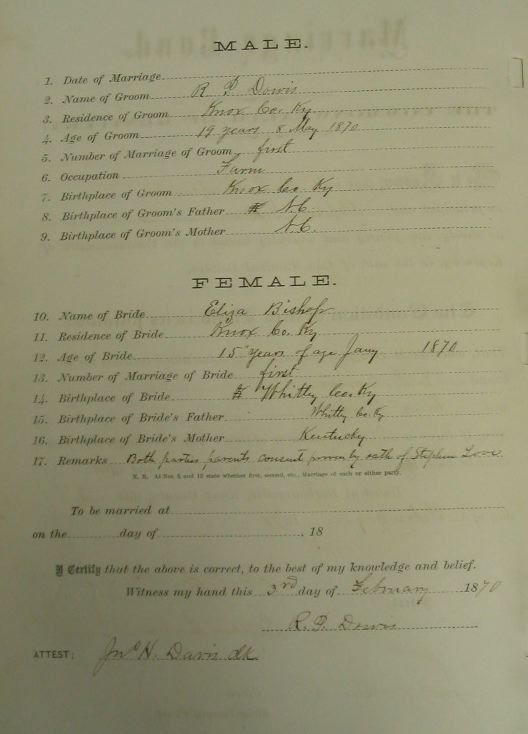 MALE.
1. Date of Marriage
2. Name of Groom R. P. Dowis
3. Residence of Groom Knox Co. Ky
4. Age of Groom 19 years 8 May 1870
5. Number of Marriage of Groom first
6. Occupation Farm
7. Birthplace of Groom Knox Co Ky
8. Birthplace of Groom's Father N.C.
9. Birthplace of Groom's Mother N.C.
FEMALE.
10. Name of Bride Eliza Bishop
11. Residence of Bride Knox Co. Ky
12. Age of Bride 15 years of age Jany 1870
13. Number of Marriage of Bride first
14. Birthplace of Bride Whitly Co. Ky
15. Birthplace of Bride's Father Whitly Co. Ky
16. Birthplace of Bride's Mother Kentucky
17. Remarks Both parties parents consent proven by oath of Stephen Love
N. B. At Nos. 5 and 13 state whether first, second, etc., Marriage of each or either party.
To be married at
on the day of , 18
I Certify that the above is correct, to the best of my knowledge and belief.
Witness my hand this 3rd day of February 1870
R. P. Dowis
ATTEST: Jno H. Davis clk